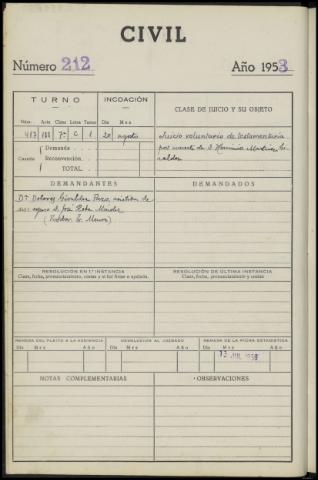 CIVIL
Número 212 Año 1953
TURNO INCOACIÓN CLASE DE JUICIO Y SU OBJETO
Núm. Acta Clase Letra Turno Día Mes
413 7ª C 1 20 agosto Juicio voluntario de testamentaria
por muerte de D.
Demanda
Cuantía Reconvención
TOTAL
DEMANDANTES DEMANDADOS
Dª Dolores asistida de
su esposo D. José
RESOLUCIÓN EN 1ª INSTANCIA RESOLUCIÓN DE ÚLTIMA INSTANCIA
Clase, fecha, pronunciamiento, costas y si fué firme o apelada. Clase, fecha, pronunciamiento y costas
REMESA DEL PLEITO A LA AUDIENCIA DEVOLUCIÓN AL JUZGADO REMESA DE LA FICHA ESTADÍSTICA
Día Mes Año Día Mes Año Día Mes Año
JUL 1958
NOTAS COMPLEMENTARIAS OBSERVACIONES